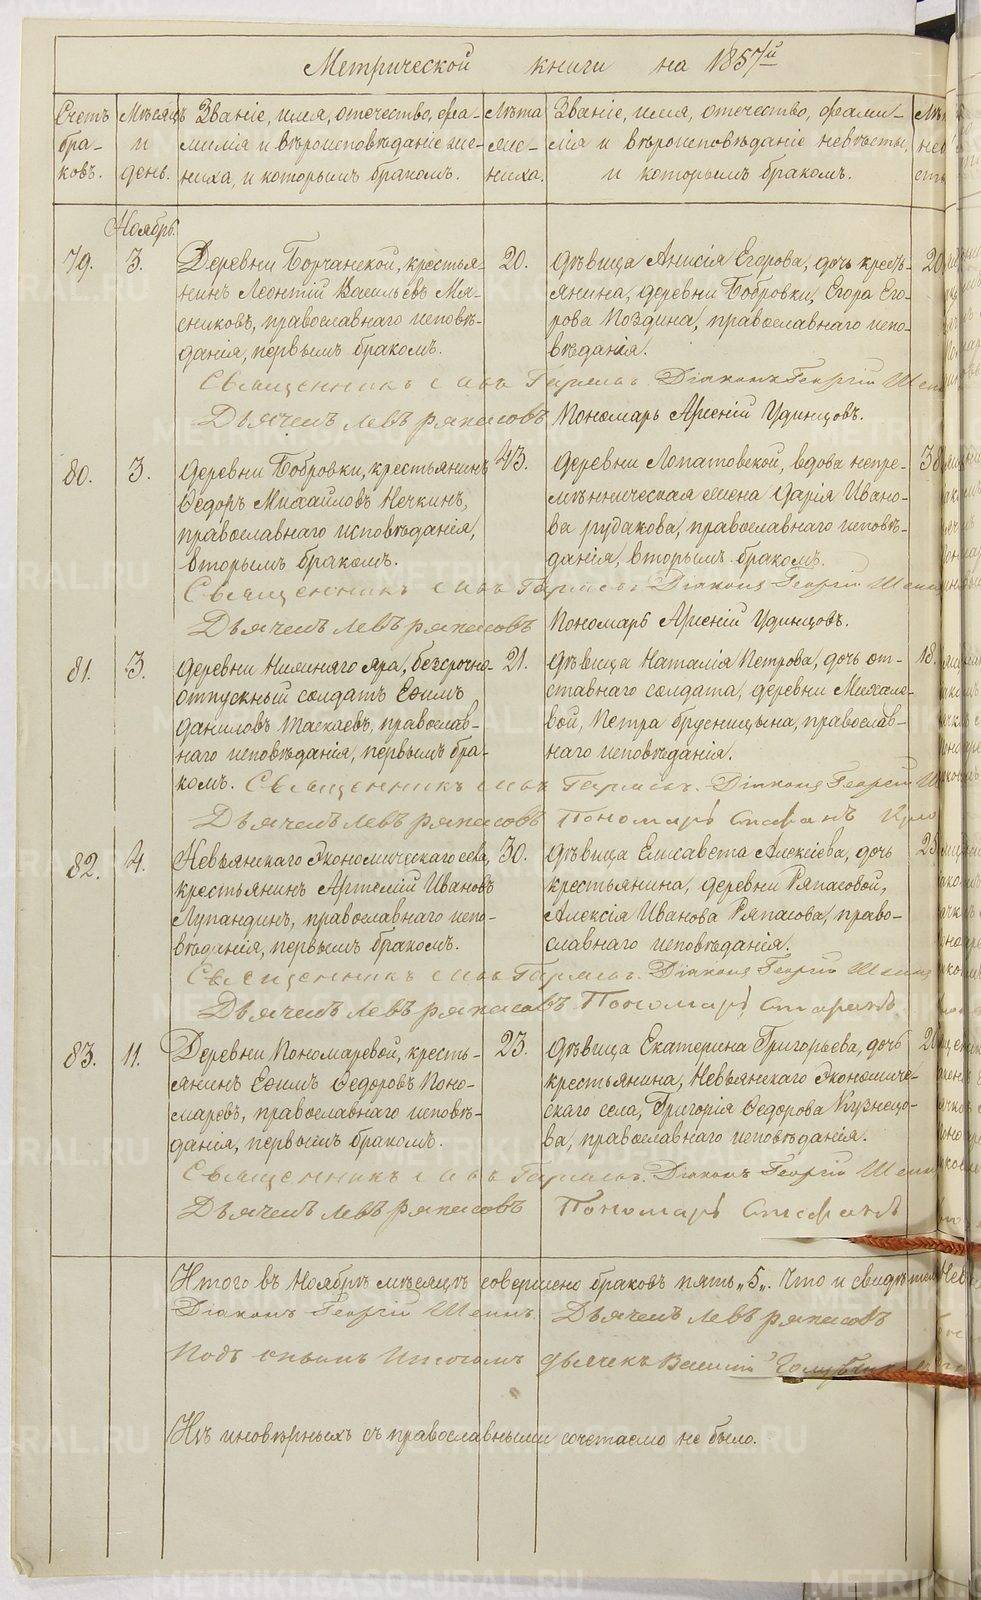 Метрической книги на 1857й
Счетъ браковъ.
Мѣсяцъ и день.
Званіе, имя, отечество, фамилія и вѣроисповѣданіе жениха, и которымъ бракомъ.
Лѣта жениха.
Званіе, имя, отечество, фамилія и вѣроисповѣданіе невѣсты, и которымъ бракомъ.
Ноябрь.
79. 3.
Деревни Борчанской, крестья-
нинъ Леонтій Васильевъ Мя-
сниковъ, православнаго исповѣ-
данія, первымъ бракомъ.
20.
Дѣвица Анисія Егорова, дочь кресть-
янина, деревни Бобровки, Егора Его-
рова Поздина, православнаго испо-
вѣданія.
20
Священникъ Діаконъ Георгій
Дьячекъ Левъ Ряпасовъ Пономарь Арсеній Удинцовъ.
80. 3.
деревни Бобровки, крестьянинъ
Ѳедоръ Михайловъ Нечкинъ,
православнаго исповѣданія,
вторымъ бракомъ.
43.
деревни Лопатовской, вдова непре-
мѣнническая жена Дарія Ивано-
ва Рудакова, православнаго исповѣ-
данія, вторымъ бракомъ.
38
Священникъ Діаконъ Георгій
Дьячекъ Левъ Ряпасовъ Пономарь Арсеній Удинцовъ.
81. 3.
деревни Нижняго Яра, безсрочно-
отпускный солдатъ Еѳимъ
Даниловъ Таскаевъ, православ-
наго исповѣданія, первымъ бра-
комъ. Священникъ Діаконъ Георгій
21.
Дѣвица Наталія Петрова, дочь от-
ставнаго солдата, деревни Михале-
вой, Петра Брусницына, православ-
наго исповѣданія.
18.
Дьячекъ Левъ Ряпасовъ Пономарь Стефанъ
82. 4.
Невьянскаго Экономическаго села,
крестьянинъ Артемій Ивановъ
Лупандинъ, православнаго испо-
вѣданія, первымъ бракомъ.
30.
Дѣвица Елисавета Алексіева, дочь
крестьянина, деревни Ряпасовой,
Алексія Иванова Ряпасова, право-
славнаго исповѣданія.
Священникъ Діаконъ Георгій
Дьячекъ Левъ Ряпасовъ Пономарь Стефанъ
83. 11.
Деревни Пономаревой, кресть-
янинъ Еѳимъ Ѳедоровъ Поно-
маревъ, православнаго исповѣ-
данія, первымъ бракомъ.
23.
Дѣвица Екатерина Григорьева, дочь
крестьянина, Невьянскаго Экономиче-
скаго села, Григорія Ѳедорова Кузнецо-
ва, православнаго исповѣданія.
Священникъ Діаконъ Георгій
Дьячекъ Левъ Ряпасовъ Пономарь Стефанъ
Итого въ Ноябрѣ мѣсяцѣ совершено браковъ пять „5„. Что и свидѣтел
Діаконъ Георгій Дьячекъ Левъ Ряпасовъ
Подъ симъ Итогомъ дьячекъ Василій
Изъ иновѣрныхъ съ православными сочетаемо не было.
METRIKI.GASO-URAL.RU